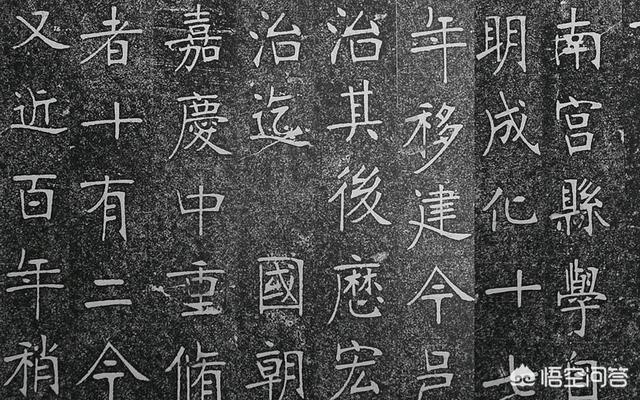 南宫縣學自
明成化十七
年移建今邑
治其後厯宏
治迄 國朝
嘉慶中重脩
者十有二今
又近百年稍
悟空问答